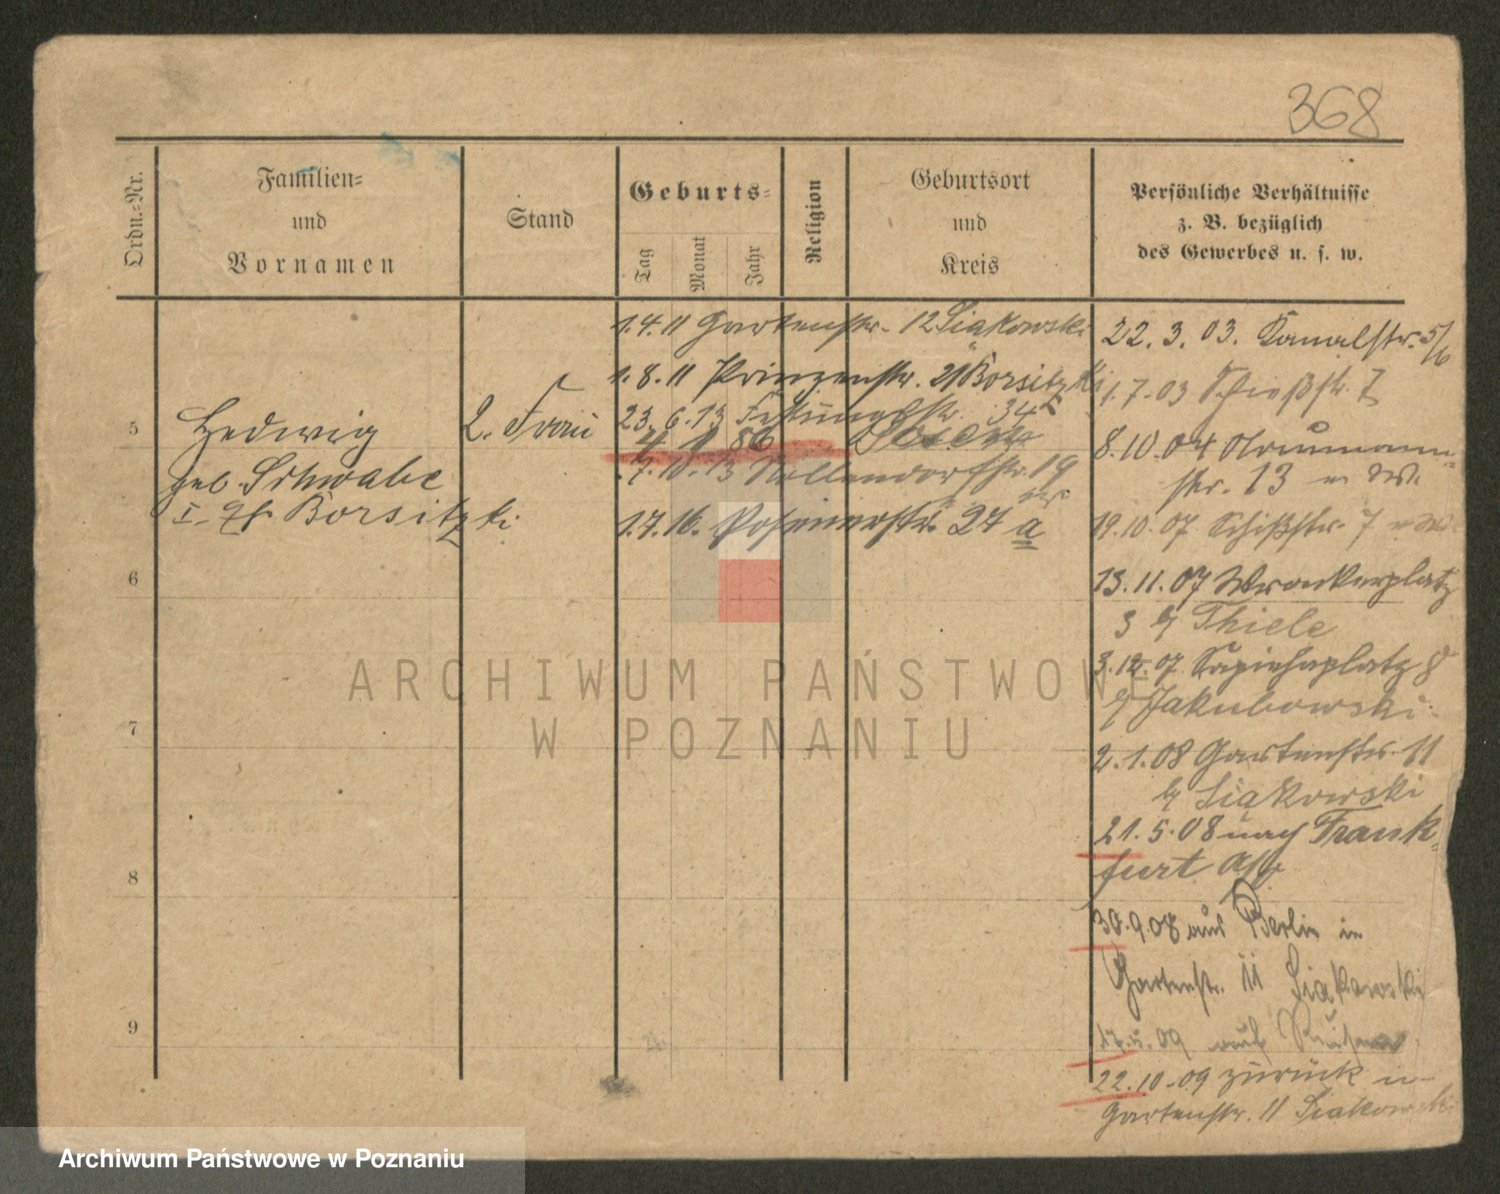 368
Ordn.-Nr.
Familien-
und
Vornamen
Stand
Geburts-
Tag
Monat
Jahr
Religion
Geburtsort
und
Kreis
Persönliche Verhältnisse
z. B. bezüglich
des Gewerbes u. s. w.
5
Hedwig
geb. Schwabe
Borsitzki
2. Frau
1.4.11 Gartenstr. 12 Siakowski
1.8.11 Prinzenstr. 21 Borsitzki
23.6.13 Festungsstr. 34
4 1 86
7.10.13 Nollendorfstr. 19
1.7.16. Posenerstr. 27 a
22.3.03. Kanalstr. 5/6
1.7.03 Schießstr. 7
8.10.04 Naumann-
str. 13
19.10.07 Schießstr. 7
13.11.07 Wronkerplatz
3 b/ Thiele
3.12.07 Sapiehaplatz 8
b/ Jakubowski
2.1.08 Gartenstr. 11
b/ Siakowski
21.5.08 nach Frank-
furt
30.9.08 aus Berlin in
Gartenstr. 11 Siakowski
09 auf Reisen
22.10.09 zurück in
Gartenstr. 11 Siakowski
6
7
8
9
ARCHIWUM PAŃSTWOWE
W POZNANIU
Archiwum Państwowe w Poznaniu